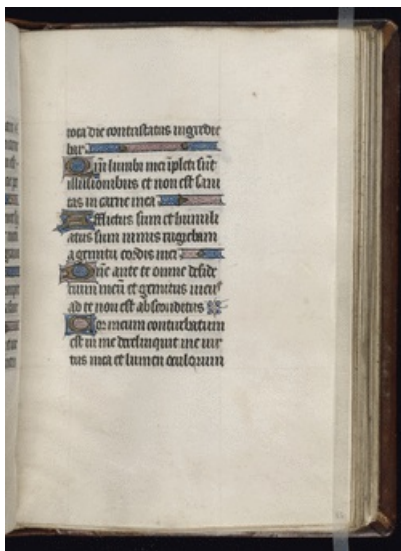 tota die contristatus ingredie
bar
Qm lumbi mei ipleti sut
illusionibus et non est sani
tas in carne mea
Afflictus sum et humili
atus sum nimis rugiebam
a gemitu cordis mei
Dne ante te omne deside
rium meu et gemitus meus
ad te non est absconditus
Cor meum conturbatum
est in me dereliquit me vir
tus mea et lumen oculorum